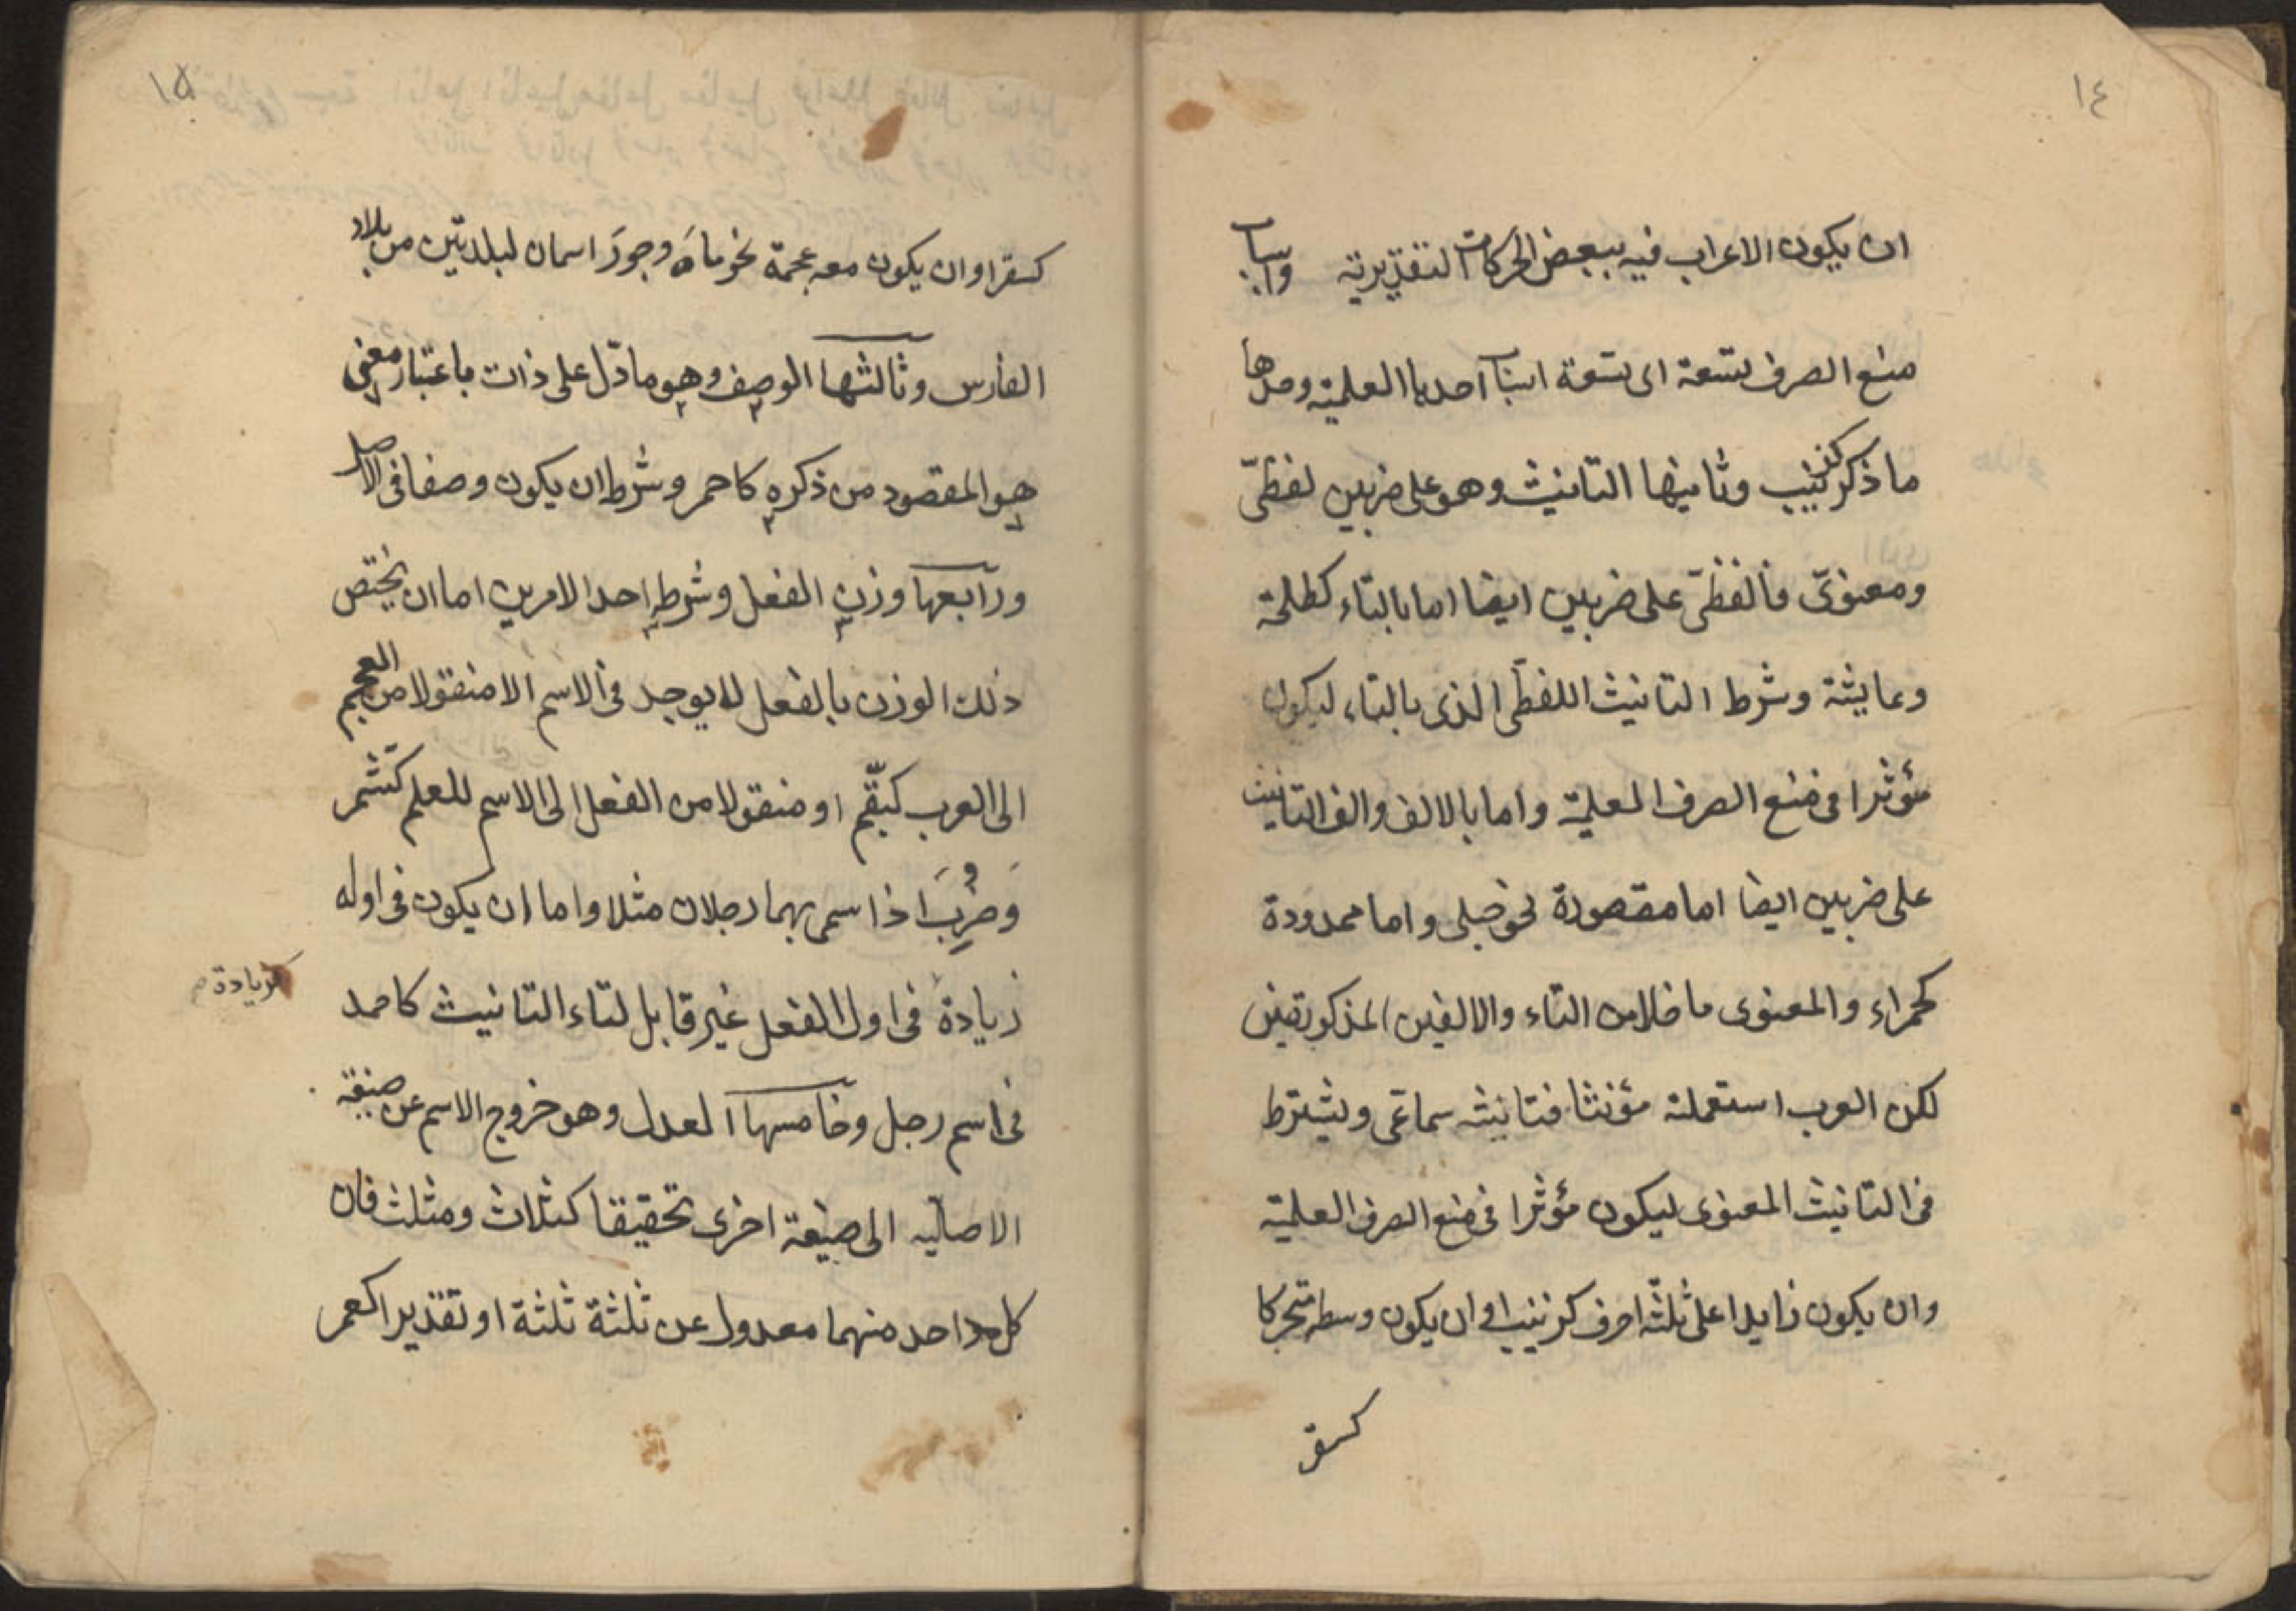 ١٤
ان يكون الاعراب فيه ببعض الحركات التقديرية واسباب
منع الصرف تسعة اى تسعة اسباب احدها العلمية وحدها
ما ذكر كزينب وثانيها التانيث وهو على ضربين لفظىّ
ومعنوىّ فالفظىّ على ضربين ايضا اما بالتاء كطلحة
وعايشة وشرط التانيث اللفظى الذى بالتاء ليكون
مؤثرا فى منع الصرف العلمية واما بالالف والف التانيث
على ضربين ايضا اما مقصورة نحو حبلى واما ممدودة
كحمراء والمعنوى ما خلا من التاء والالفين المذكورتين
لكن العرب استعملته مؤنثا فتانيثه سماعى ويشترط
فى التانيث المعنوى ليكون مؤثرا فى منع الصرف العلمية
وان يكون زايدا على ثلثة احرف كزينب او ان يكون وسطه متحركا
كسقر
١٥
كسقر او ان يكون معه عجمة نحو ماهَ وجورَ اسمان لبلدتين من بلاد
الفارس وثالثها الوصف وهو ما دلّ على ذات باعتبار معنى
هو المقصود من ذكره كاحمر وشرط ان يكون وصفا فى الاصل
ورابعها وزن الفعل وشرطه احد الامرين اما ان يختص
ذلك الوزن بالفعل لا يوجد فى الاسم الا منقولا من العجم
الى العرب كبقّم او منقولا من الفعل الى الاسم للعلم كشمّر
وَضُرِبَ اذا سمى بهما رجلان مثلا واما ان يكون فى اوله
زيادة فى اول الفعل غير قابل لتاء التانيث كاحمد
كزيادة
فى اسم رجل وخامسها العدل وهو خروج الاسم عن صيغة
الاصلية الى صيغة اخرى تحقيقا كثلاث ومثلث فان
كل واحد منهما معدول عن ثلثة ثلثة او تقديرا كعمر